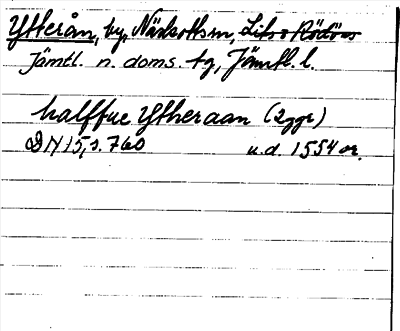 Ytterån, by, Näskotts sn, Lits o Rödöns
Jämtl. n. doms. tg, Jämtl. l.
halffue Ytheraan (2ggr)
DN 15, s. 760 u.d. 1554 or.